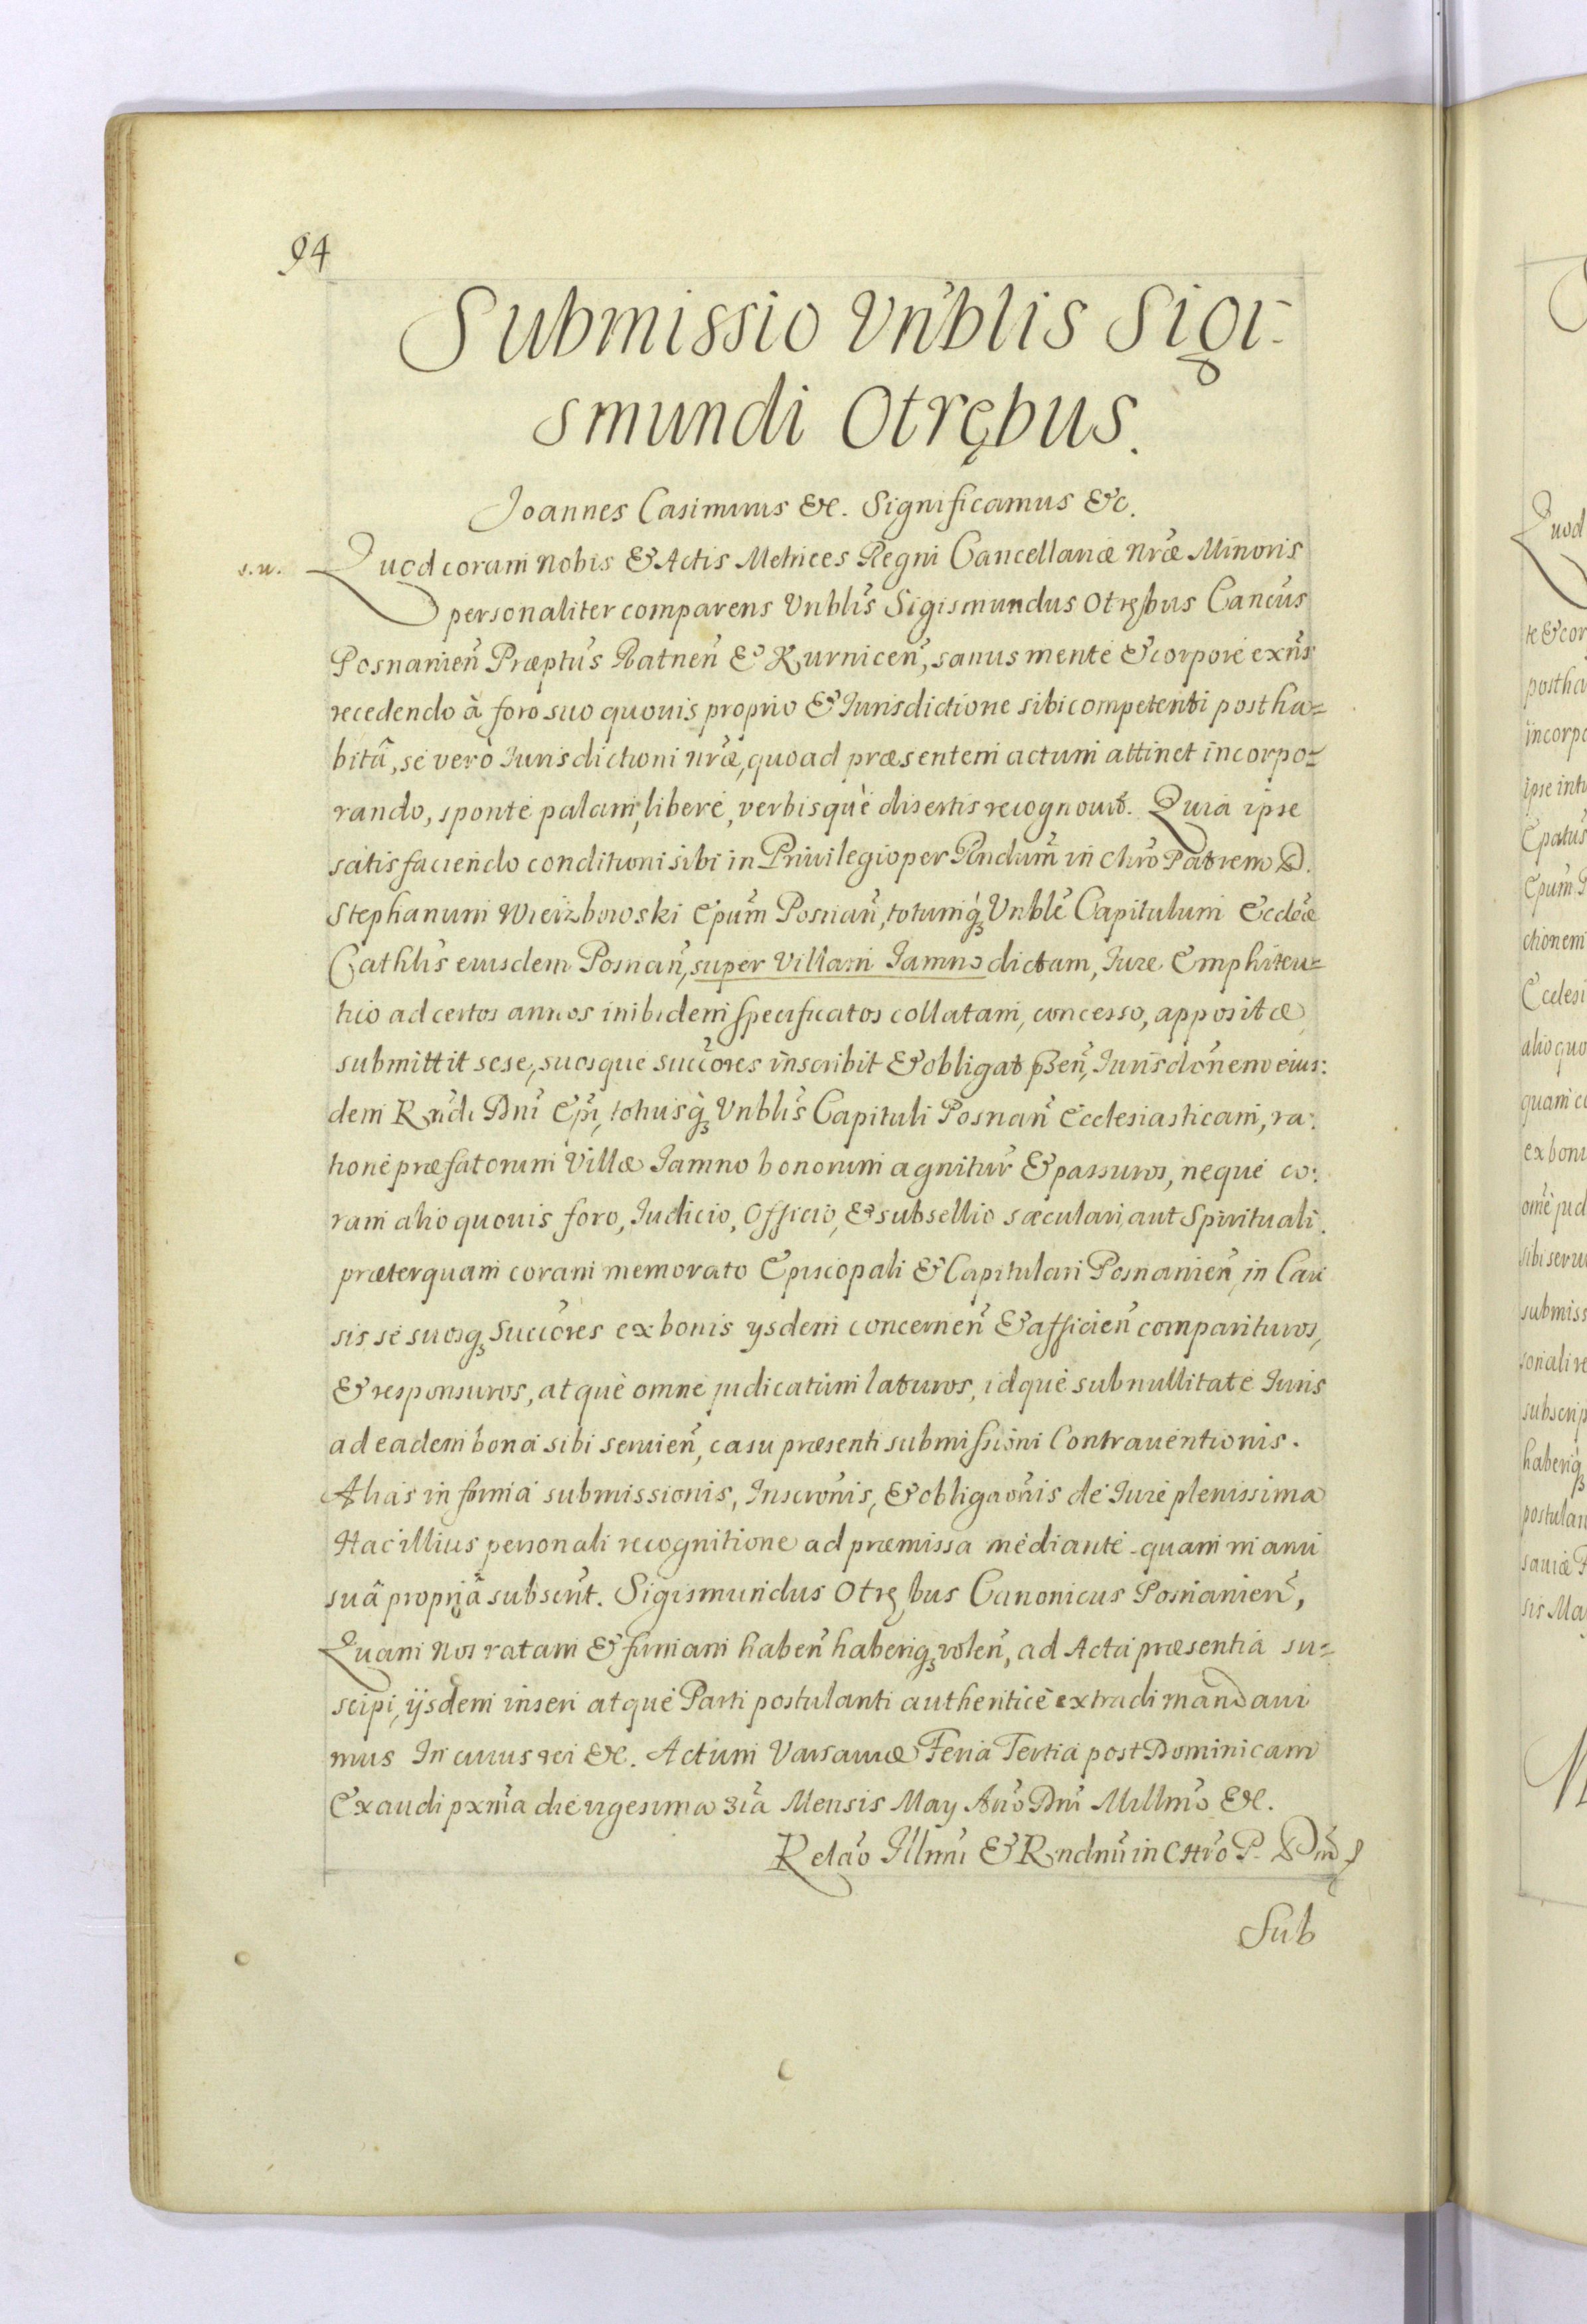 94
Submissio Vn̄blis Sigi-
smundi Otrębus.
Joannes Casimirus &c. Significamus &c.
s.n. Quod coram nobis & Actis Metrices Regni Cancellariæ nr̄æ Minoris
personaliter comparens Vnbl̄is Sigismundus Otrębus Cancūs
Posnanien̄ Præptūs Ratnen̄ & Kurnicen̄, sanus mente & corpore exn̄s
recedendo à foro suo quouis proprio & Jurisdictione sibi competenti postha=
bitâ, se verò Jurisdictioni nr̄æ, quoad præsentem actum attinet incorpo=
rando, sponte palam, libere, verbisquè disertis recognouit. Quia ipse
satisfaciendo conditioni sibi in Priuilegio per Rndum̄ in Chr̄o Patrem D.
Stephanum Wierzbowski Epum̄ Posnan̄, totumq́ꝫ Vnblē Capitulum Eccl̄æ
Cathl̄is eiusdem Posnan̄, super Villam Jamno dictam, Jure Emphiteu=
tico ad certos annos inibidem specificatos collatam, concesso, appositæ
submittit sese, suosque succ̄ores inscribit & obligat p̄sen̄, Jurisdon̄em eius:
dem Rn̄di Dn̄i Ep̄i, totiusq́ꝫ Vnbl̄is Capituli Posnan̄ Ecclesiasticam, ra:
tione præfatorum Villæ Jamno bonorum agnitur̄ & passuros, neque co:
ram alio quouis foro, Judicio, Officio, & subsellio sæculari, aut Spirituali,
præterquam coram memorato Episcopali & Capitulari Posnanien̄, in Cau
sis se suosqꝫ Succōres ex bonis ysdem concernen̄ & afficien̄ comparituros,
& responsuros, atquè omne judicatum laturos, idque sub nullitate Juris
ad eadem bona sibi seruien̄, casu præsenti submissioni Contrauentionis.
Alias in forma submissionis, Inscron̄is, & obligaon̄is de Jure plenissima
Hac illius personali recognitione ad præmissa mediante quam manu
suâ propriâ subscr̄t. Sigismundus Otrębus Canonicus Posnanien̄,
Quam nos ratam & firmam haben̄ haberiqꝫ volen̄, ad Acta præsentia su=
scipi, ijsdem inseri atque Parti postulanti authenticè extradi mandaui
mus In cuius rei &c. Actum Varsauiæ Feria Tertia post Dominicam
Exaudi pxm̄a die vigesima 3ia Mensis May An̄o Dn̄i Millm̄o &c.
Relāo Illmi & Rndmi in Chr̄o P. Dn̄i
Sub